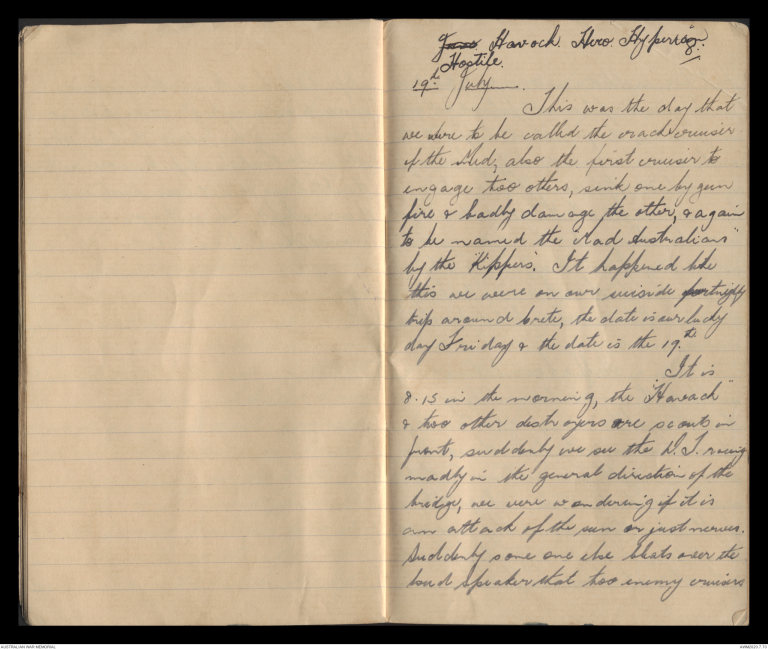 Havock. Hero. Hyperion.
Hostile.
19th July.
This was the day that
we were to be called the crack cruiser
of the Med, also the first cruiser to
engage two others, sink one by gun
fire & badly damage the other, & again
to be named the "Mad Australians"
by the "Kippers". It happened like
this we were on our suicide fortnightly
trip around Crete, the date is our lucky
day Friday & the date is the 19th.
It is
8.15 in the morning, the "Havoack"
& two other destroyers are scouts in
front, suddenly we see the racing
madly in the general direction of the
bridge, we were wondering if it is
an attack of the sun or just nerves.
Suddenly some one else blats over the
loud speaker that two enemy cruisers
AUSTRALIAN WAR MEMORIAL